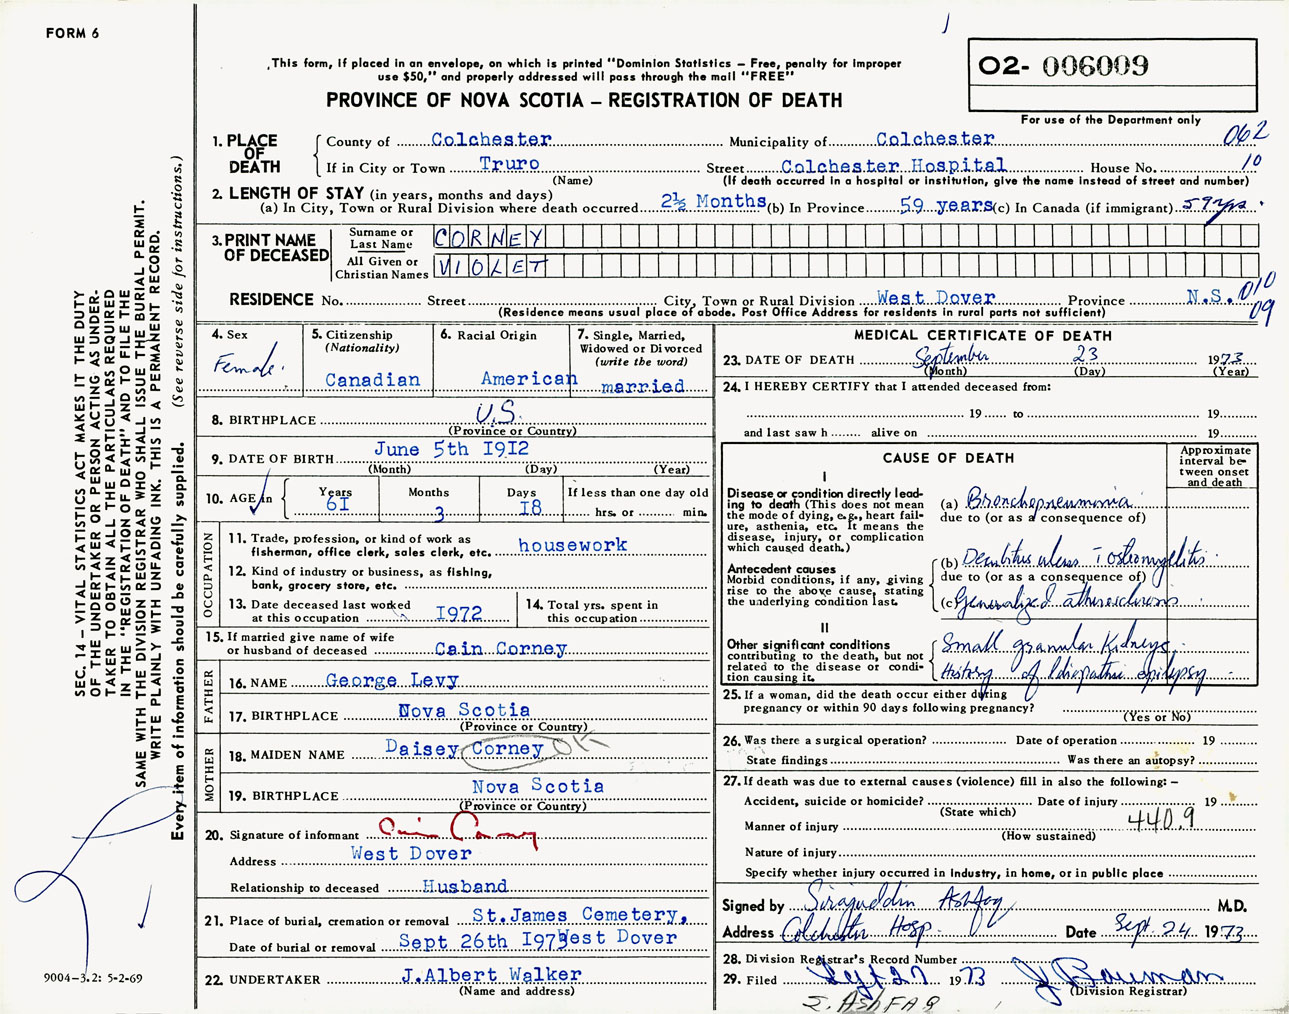 FORM 6
SEC. 14 – VITAL STATISTICS ACT MAKES IT THE DUTY
OF THE UNDERTAKER OR PERSON ACTING AS UNDER-
TAKER TO OBTAIN ALL THE PARTICULARS REQUIRED
IN THE "REGISTRATION OF DEATH" AND TO FILE THE
SAME WITH THE DIVISION REGISTRAR WHO SHALL ISSUE THE BURIAL PERMIT.
WRITE PLAINLY WITH UNFADING INK. THIS IS A PERMANENT RECORD.
Every item of information should be carefully supplied. (See reverse side for instructions.)
9004-3.2: 5-2-69
This form, if placed in an envelope, on which is printed "Dominion Statistics – Free, penalty for improper
use $50," and properly addressed will pass through the mail "FREE"
PROVINCE OF NOVA SCOTIA – REGISTRATION OF DEATH
O2- 006009
For use of the Department only
1. PLACE OF DEATH
County of Colchester Municipality of Colchester 062
If in City or Town Truro Street Colchester Hospital House No. 10
(Name) (If death occurred in a hospital or institution, give the name instead of street and number)
2. LENGTH OF STAY (in years, months and days)
(a) In City, Town or Rural Division where death occurred 2½ Months (b) In Province 59 years (c) In Canada (if immigrant) 59 yrs.
3. PRINT NAME OF DECEASED
Surname or Last Name CORNEY
All Given or Christian Names VIOLET
RESIDENCE No. Street City, Town or Rural Division West Dover Province N.S. 010
(Residence means usual place of abode. Post Office Address for residents in rural parts not sufficient) 09
4. Sex Female.
5. Citizenship (Nationality) Canadian
6. Racial Origin American
7. Single, Married, Widowed or Divorced (write the word) married
8. BIRTHPLACE U.S.
(Province or Country)
9. DATE OF BIRTH June 5th 1912
(Month) (Day) (Year)
10. AGE in Years 61 Months 3 Days 18 If less than one day old hrs. or min.
OCCUPATION
11. Trade, profession, or kind of work as fisherman, office clerk, sales clerk, etc. housework
12. Kind of industry or business, as fishing, bank, grocery store, etc.
13. Date deceased last worked at this occupation 1972
14. Total yrs. spent in this occupation
15. If married give name of wife or husband of deceased Cain Corney
FATHER
16. NAME George Levy
17. BIRTHPLACE Nova Scotia
(Province or Country)
MOTHER
18. MAIDEN NAME Daisey Corney OK
19. BIRTHPLACE Nova Scotia
(Province or Country)
20. Signature of informant Cain Corney
Address West Dover
Relationship to deceased Husband
21. Place of burial, cremation or removal St.James Cemetery,
Date of burial or removal Sept 26th 1973 West Dover
22. UNDERTAKER J.Albert Walker
(Name and address)
MEDICAL CERTIFICATE OF DEATH
23. DATE OF DEATH September 23 1973
(Month) (Day) (Year)
24. I HEREBY CERTIFY that I attended deceased from:
19 to 19
and last saw h alive on 19
CAUSE OF DEATH
Approximate interval between onset and death
I
Disease or condition directly leading to death (This does not mean the mode of dying, e.g., heart failure, asthenia, etc. It means the disease, injury, or complication which caused death.)
(a) Bronchopneumonia
due to (or as a consequence of)
Antecedent causes
Morbid conditions, if any, giving rise to the above cause, stating the underlying condition last.
(b) Decubitus ulcers c̄ osteomyelitis
due to (or as a consequence of)
(c) Generalized atherosclerosis
II
Other significant conditions contributing to the death, but not related to the disease or condition causing it.
Small granular Kidneys.
History of Idiopathic epilepsy
25. If a woman, did the death occur either during
pregnancy or within 90 days following pregnancy?
(Yes or No)
26. Was there a surgical operation? Date of operation 19
State findings Was there an autopsy?
27. If death was due to external causes (violence) fill in also the following: –
Accident, suicide or homicide? Date of injury 19
(State which)
Manner of injury 440.9
(How sustained)
Nature of injury
Specify whether injury occurred in industry, in home, or in public place
Signed by Sirajuddin Ashfaq M.D.
Address Colchester Hosp. Date Sept. 24 1973
28. Division Registrar's Record Number
29. Filed Sept 27 1973 J Bauman
(Division Registrar)
S. ASHFAQ